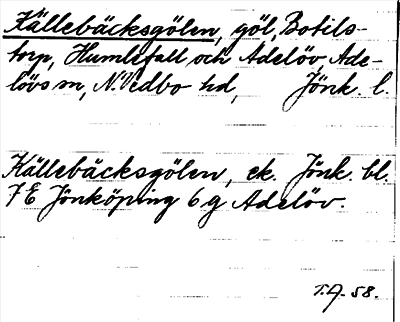 Källebäcksgölen, göl, Botils-
torp, Humlefall och Adelöv, Ade-
lövs sn, N. Vedbo hd, Jönk. l.
Källebäcksgölen, ek. Jönk. bl.
7 E Jönköping 6 g Adelöv.
T.A. 58.